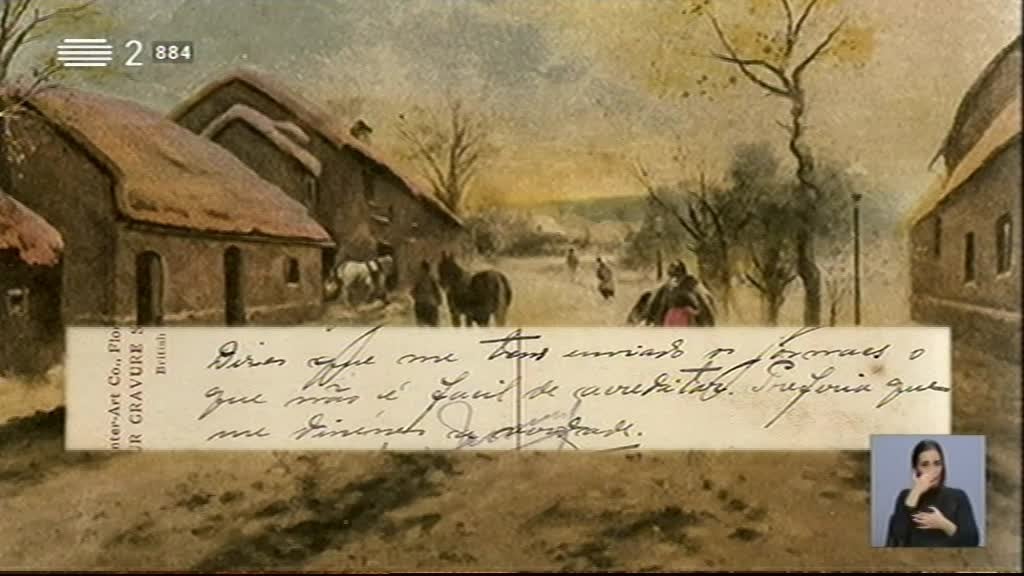 2 884
Dizes que me tens enviado os jornaes o
que não é facil de acreditar. Preferia que
me dissesses a verdade.
nter-Art Co., Flor
UR GRAVURE S
British